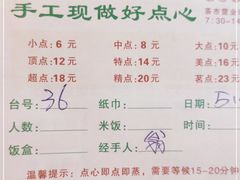 手工现做好点心
茶市营业
7:30-1
小点：6 元 中点：8 元 大点：10元
顶点：12 元 特点：14元 美点：16元
超点：18元 精点：20元 茗点：23元
台号：36 纸巾： 日期：5
人数： 米饭： 时间：
饭盒： 经手人：
温馨提示：点心即点即蒸，需要等候15-20分钟